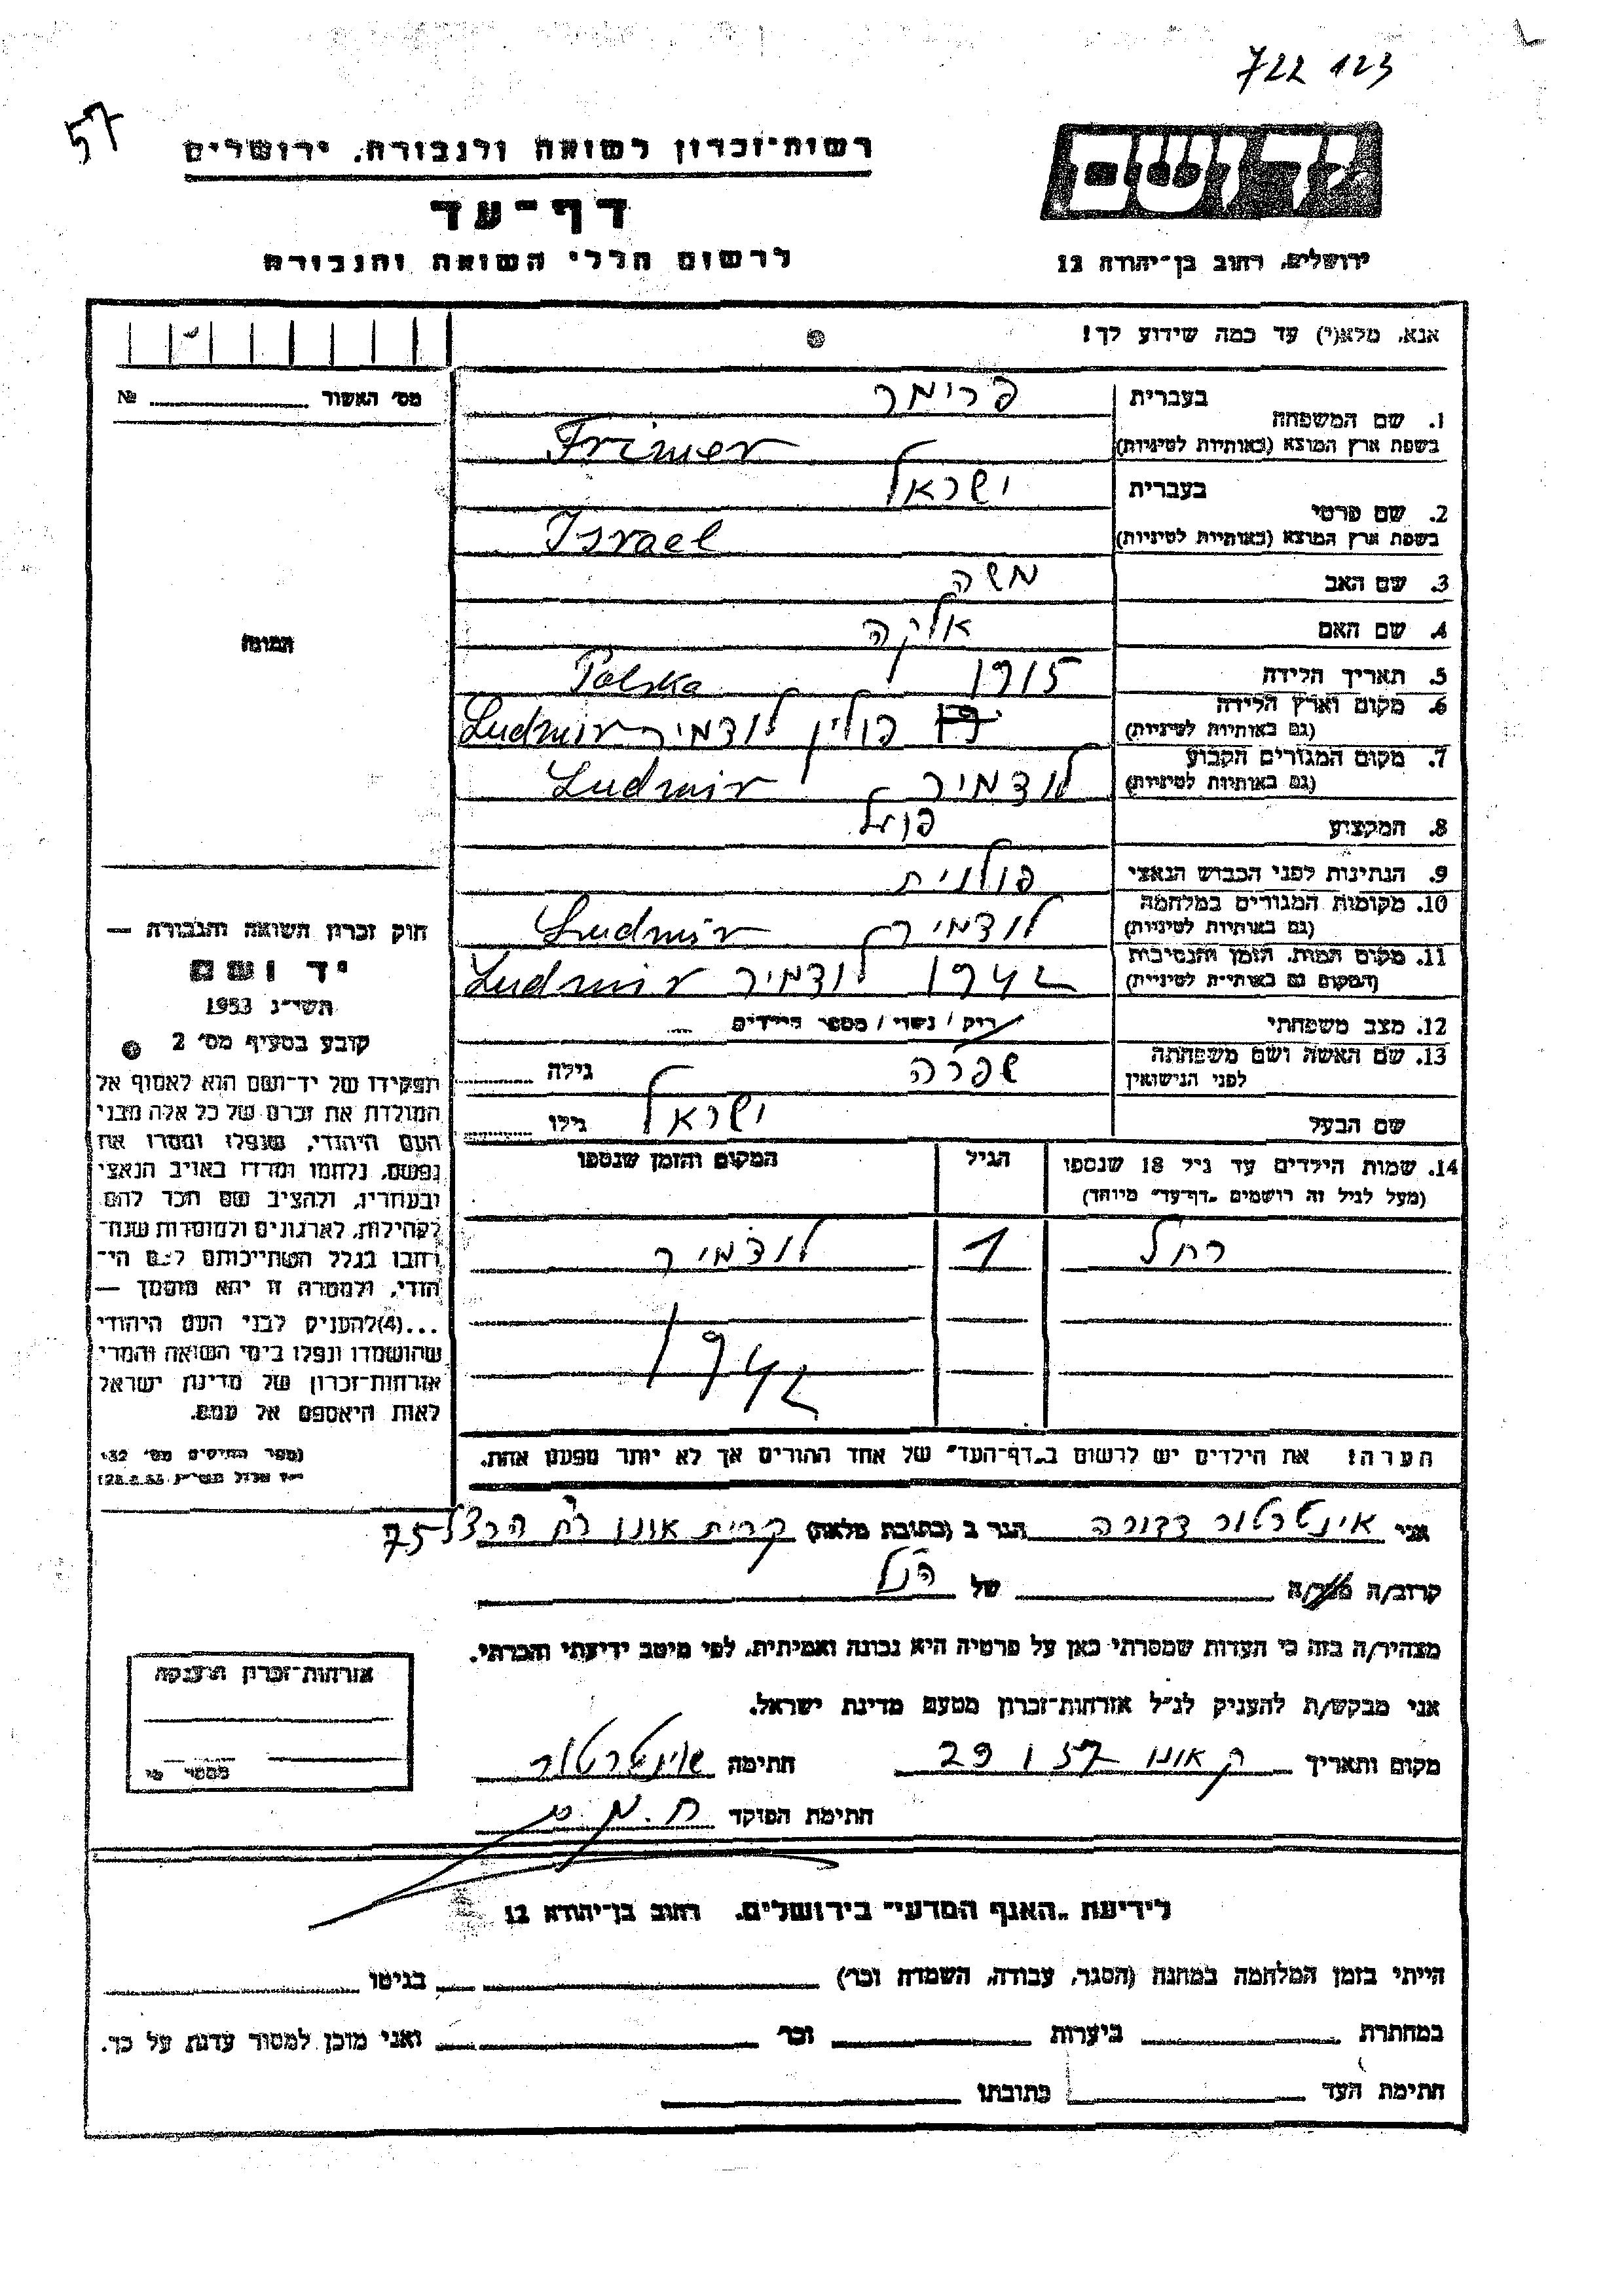 722 123
57
רשות-זכרון לשואה ולגבורה, ירושלים
דף-עד
לרשום חללי השואה והגבורה
יד ושם
ירושלים, רחוב בן-יהודה 12
אנא, מלא(י) עד כמה שידוע לך!
מס' האשור № 
1. שם המשפחה בעברית פרימר
בשפת ארץ המוצא (באותיות לטיניות) Frimer
2. שם פרטי בעברית ישראל
בשפת ארץ המוצא (באותיות לטיניות) Israel
3. שם האב משה
4. שם האם אלקה
5. תאריך הלידה 1915
6. מקום וארץ הלידה (גם באותיות לטיניות) Polska פולין לודמיר Ludmir
7. מקום המגורים הקבוע (גם באותיות לטיניות) לודמיר Ludmir
8. המקצוע פועל
9. הנתינות לפני הכבוש הנאצי פולנית
10. מקומות המגורים במלחמה (גם באותיות לטיניות) לודמיר Ludmir
11. מקום המות, הזמן והנסיבות (המקום גם באותיות לטיניות) 1942 לודמיר Ludmir
12. מצב משפחתי רוק / נשוי / מספר הילדים
13. שם האשה ושם משפחתה לפני הנישואין שפרה גילה
שם הבעל ישראל גילו
14. שמות הילדים עד גיל 18 שנספו הגיל המקום והזמן שנספו
(מעל לגיל זה רושמים "דף-עד" מיוחד)
רחל 1 לודמיר
1942
הערה: את הילדים יש לרשום ב"דף-העד" של אחד ההורים אך לא יותר מפעם אחת.
התמונה
חוק זכרון השואה והגבורה —
יד ושם
תשי"ג 1953
קובע בסעיף מס' 2
תפקידו של יד-ושם הוא לאסוף אל
המולדת את זכרם של כל אלה מבני
העם היהודי, שנפלו ומסרו את
נפשם, נלחמו ומרדו באויב הנאצי
ובעוזריו, ולהציב שם וזכר להם
לקהילות, לארגונים ולמוסדות שנח-
רבו בגלל השתייכותם לעם הי-
הודי, ולמטרה זו יהא מוסמך —
...(4) להעניק לבני העם היהודי
שהושמדו ונפלו בימי השואה והמרי
אזרחות-זכרון של מדינת ישראל
לאות היאספם אל עמם.
אני אינטרטור דבורה הגר ב (כתובת מלאה) קרית אונו רח הרצל 75
קרוב/ה מכר/ה של הנ"ל
מצהיר/ה בזה כי העדות שמסרתי כאן על פרטיה היא נכונה ואמיתית, לפי מיטב ידיעתי והכרתי.
אני מבקש/ת להעניק לנ"ל אזרחות-זכרון מטעם מדינת ישראל.
מקום ותאריך ק אונו 29 1 57 חתימה אינטרטור
חתימת הפוקד
אזרחות-זכרון הוענקה
לידיעת "האגף המדעי" בירושלים, רחוב בן-יהודה 12
הייתי בזמן המלחמה במחנה (הסגר, עבודה, השמדה וכו') בגיטו
במחתרת ביערות וכו' ואני מוכן למסור עדות על כך.
חתימת העד כתובתו